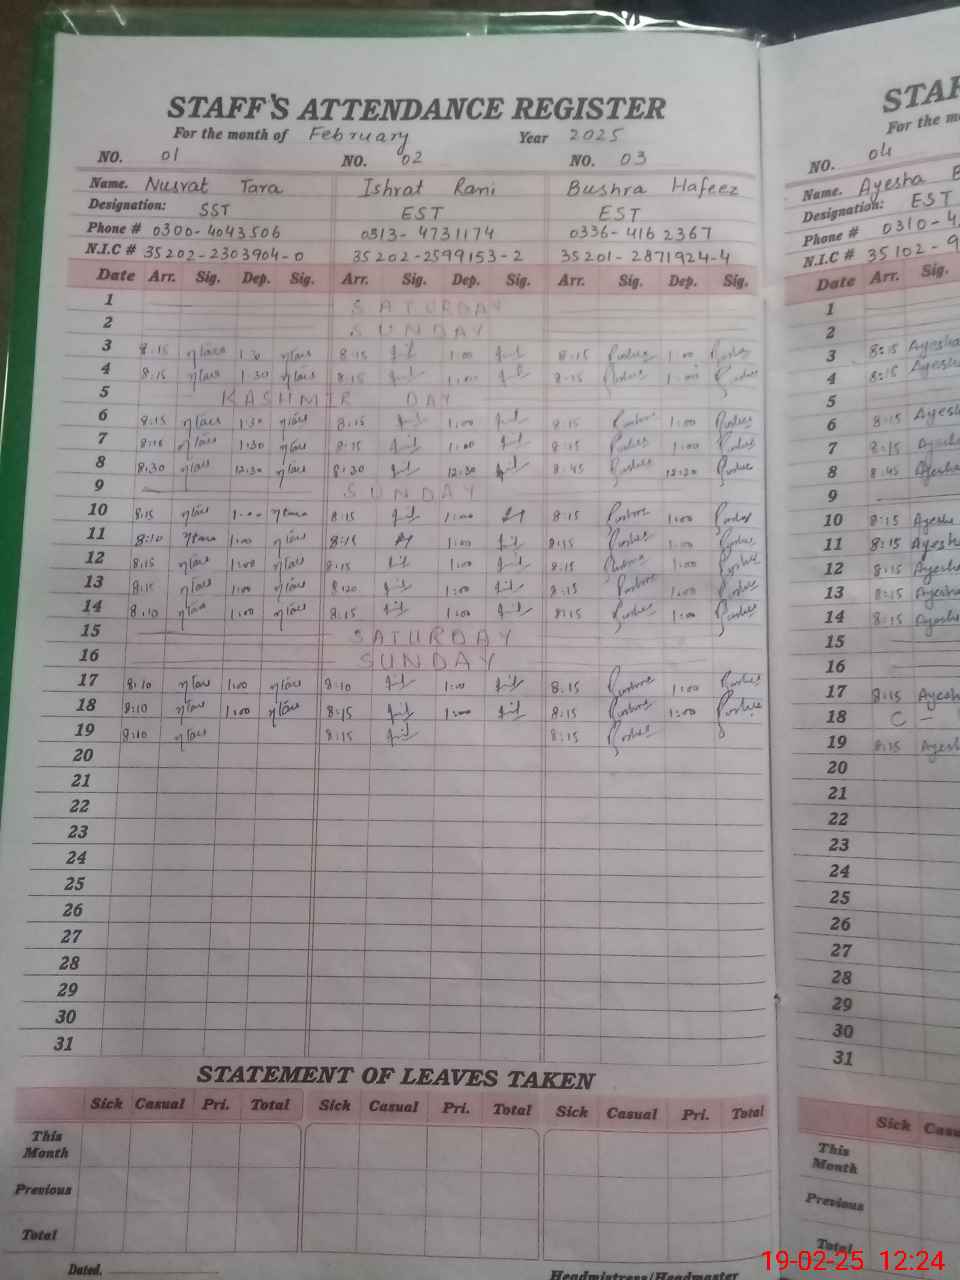 STAFF'S ATTENDANCE REGISTER
For the month of February Year 2025
NO. 01 NO. 02 NO. 03
Name. Nusrat Tara Ishrat Rani Bushra Hafeez
Designation: SST EST EST
Phone # 0300-4043506 0313-4731174 0336-4162367
N.I.C # 35202-2303904-0 35202-2599153-2 35201-2871924-4
Date Arr. Sig. Dep. Sig. Arr. Sig. Dep. Sig. Arr. Sig. Dep. Sig.
1 SATURDAY
2 SUNDAY
3 8:15 1:30 8:15 1:00 8:15 1:00
4 8:15 1:30 8:15 1:00 8:15 1:00
5 KASHMIR DAY
6 8:15 1:30 8:15 1:00 8:15 1:00
7 8:15 1:30 8:15 1:00 8:15 1:00
8 8:30 12:30 8:30 12:30 8:45 12:30
9 SUNDAY
10 8:15 1:00 8:15 1:00 8:15 1:00
11 8:10 1:00 8:15 1:00 8:15 1:00
12 8:15 1:00 8:15 1:00 8:15 1:00
13 8:15 1:00 8:20 1:00 8:15 1:00
14 8:10 1:00 8:15 1:00 8:15 1:00
15 SATURDAY
16 SUNDAY
17 8:10 1:00 8:10 1:00 8:15 1:00
18 8:10 1:00 8:15 1:00 8:15 1:00
19 8:10 8:15 8:15
20
21
22
23
24
25
26
27
28
29
30
31
STATEMENT OF LEAVES TAKEN
Sick Casual Pri. Total Sick Casual Pri. Total Sick Casual Pri. Total
This Month
Previous
Total
Dated.
Headmistress/Headmaster
For the
NO. 04
Name. Ayesha
Designation: EST
Phone # 0310-4
N.I.C # 35102-9
Date Arr. Sig.
1
2
3 8:15 Ayesha
4 8:15 Ayesha
5
6 8:15 Ayesha
7 8:15 Ayesha
8 8:45 Ayesha
9
10 8:15 Ayesha
11 8:15 Ayesha
12 8:15 Ayesha
13 8:15 Ayesha
14 8:15 Ayesha
15
16
17 8:15 Ayesha
18 C -
19 8:15 Ayesha
20
21
22
23
24
25
26
27
28
29
30
31
Sick
This Month
Previous
Total
19-02-25 12:24